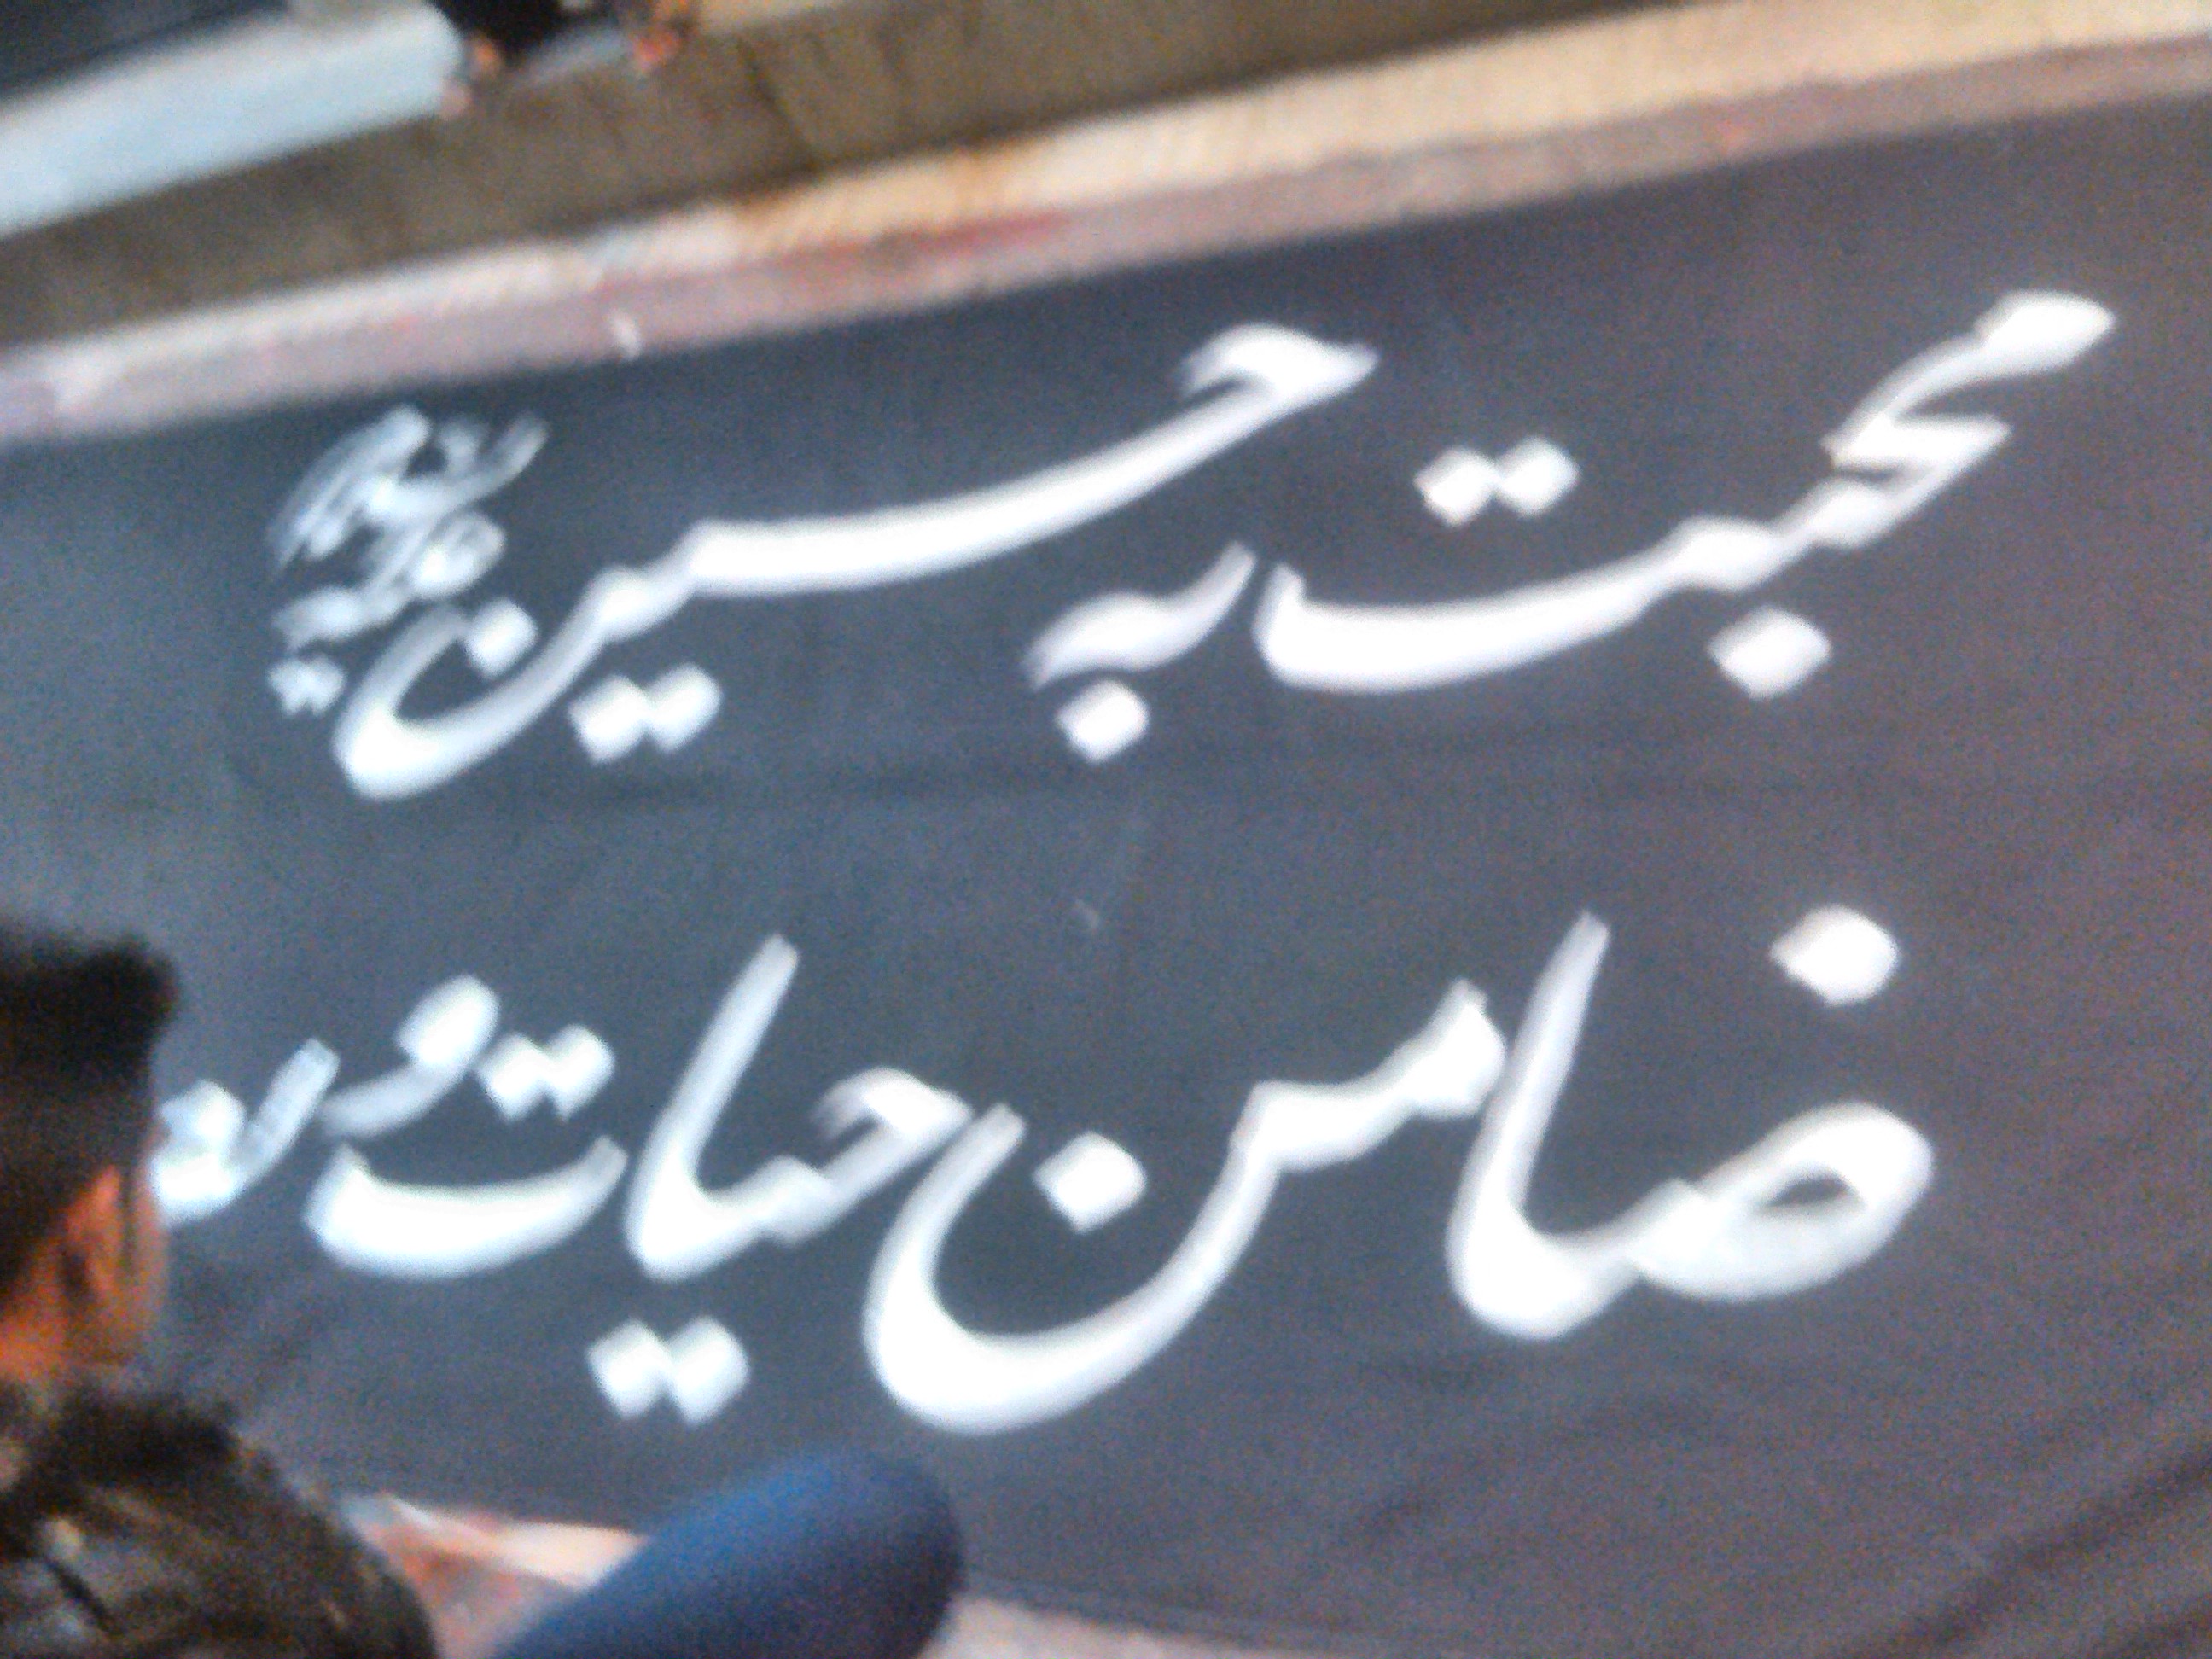 محبت به حسین علیه السلام
ضامن حیات و